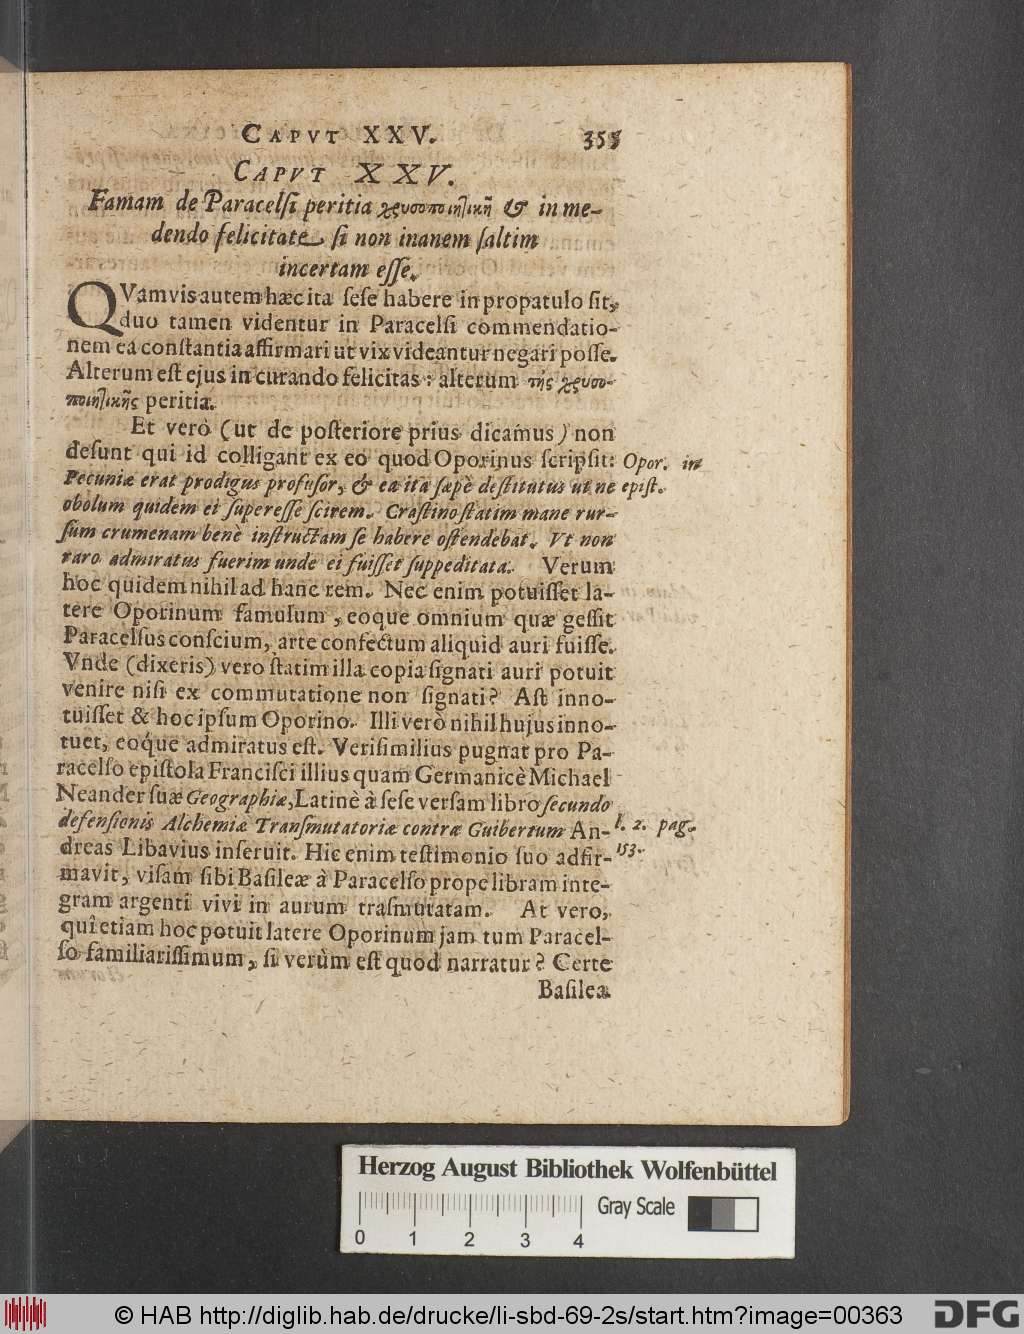 CAPVT XXV. 355
CAPVT XXV.
Famam de Paracelſi peritia χρυσοποιητικῇ & in me-
dendo felicitate, ſi non inanem ſaltim
incertam eſſe.
QVamvis autem hæc ita ſeſe habere in propatulo ſit,
duo tamen videntur in Paracelſi commendatio-
nem ea conſtantia affirmari ut vix videantur negari poſſe.
Alterum eſt ejus in curando felicitas: alterum τῆς χρυσο-
ποιητικῆς peritia.
Et verò (ut de poſteriore prius dicamus) non
deſunt qui id colligant ex eo quod Oporinus ſcripſit: Opor. in
Pecuniæ erat prodigus profuſor, & ea ita ſæpè deſtitutus ut ne epiſt.
obolum quidem ei ſupereſſe ſcirem. Craſtino ſtatim mane rur-
ſùm crumenam benè inſtructam ſe habere oſtendebat. Vt non
raro admiratus fuerim unde ei fuiſſet ſuppeditata. Verum
hoc quidem nihil ad hanc rem. Nec enim potuiſſet la-
tere Oporinum famulum, eoque omnium quæ geſſit
Paracelſus conſcium, arte confectum aliquid auri fuiſſe.
Vnde (dixeris) vero ſtatim illa copia ſignati auri potuit
venire niſi ex commutatione non ſignati? Aſt inno-
tuiſſet & hoc ipſum Oporino. Illi verò nihil hujus inno-
tuet, eoq́ue admiratus eſt. Veriſimilius pugnat pro Pa-
racelſo epiſtola Franciſci illius quam Germanicè Michael
Neander ſuæ Geographiæ, Latinè à ſeſe verſam libro ſecundo
defenſionis Alchemiæ Tranſmutatoriæ contra Guibertum An- l. 2. pag.
dreas Libavius inſeruit. Hic enim teſtimonio ſuo adfir- 153.
mavit, viſam ſibi Baſileæ à Paracelſo prope libram inte-
gram argenti vivi in aurum traſmutatam. At vero,
quî etiam hoc potuit latere Oporinum jam tum Paracel-
ſo familiariſſimum, ſi verùm eſt quod narratur? Certe
Baſileæ
Herzog August Bibliothek Wolfenbüttel
Gray Scale
0 1 2 3 4
© HAB http://diglib.hab.de/drucke/li-sbd-69-2s/start.htm?image=00363 DFG